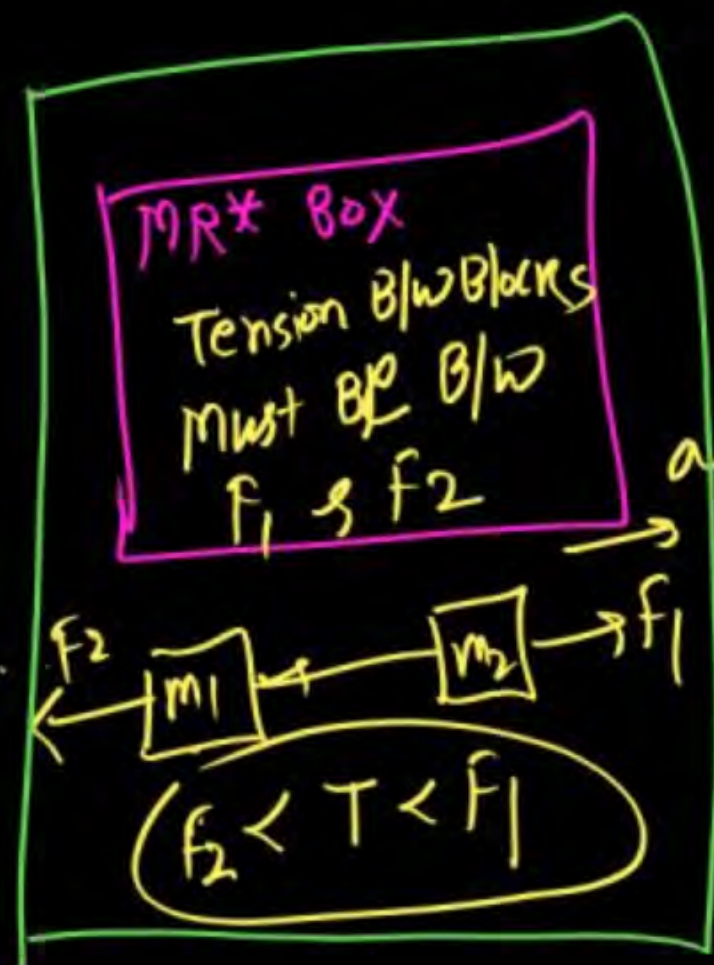 MR* BOX
Tension B/w Blocks
Must BE B/w
F1 & F2
a
F2
m1
m2
F1
F2 < T < F1